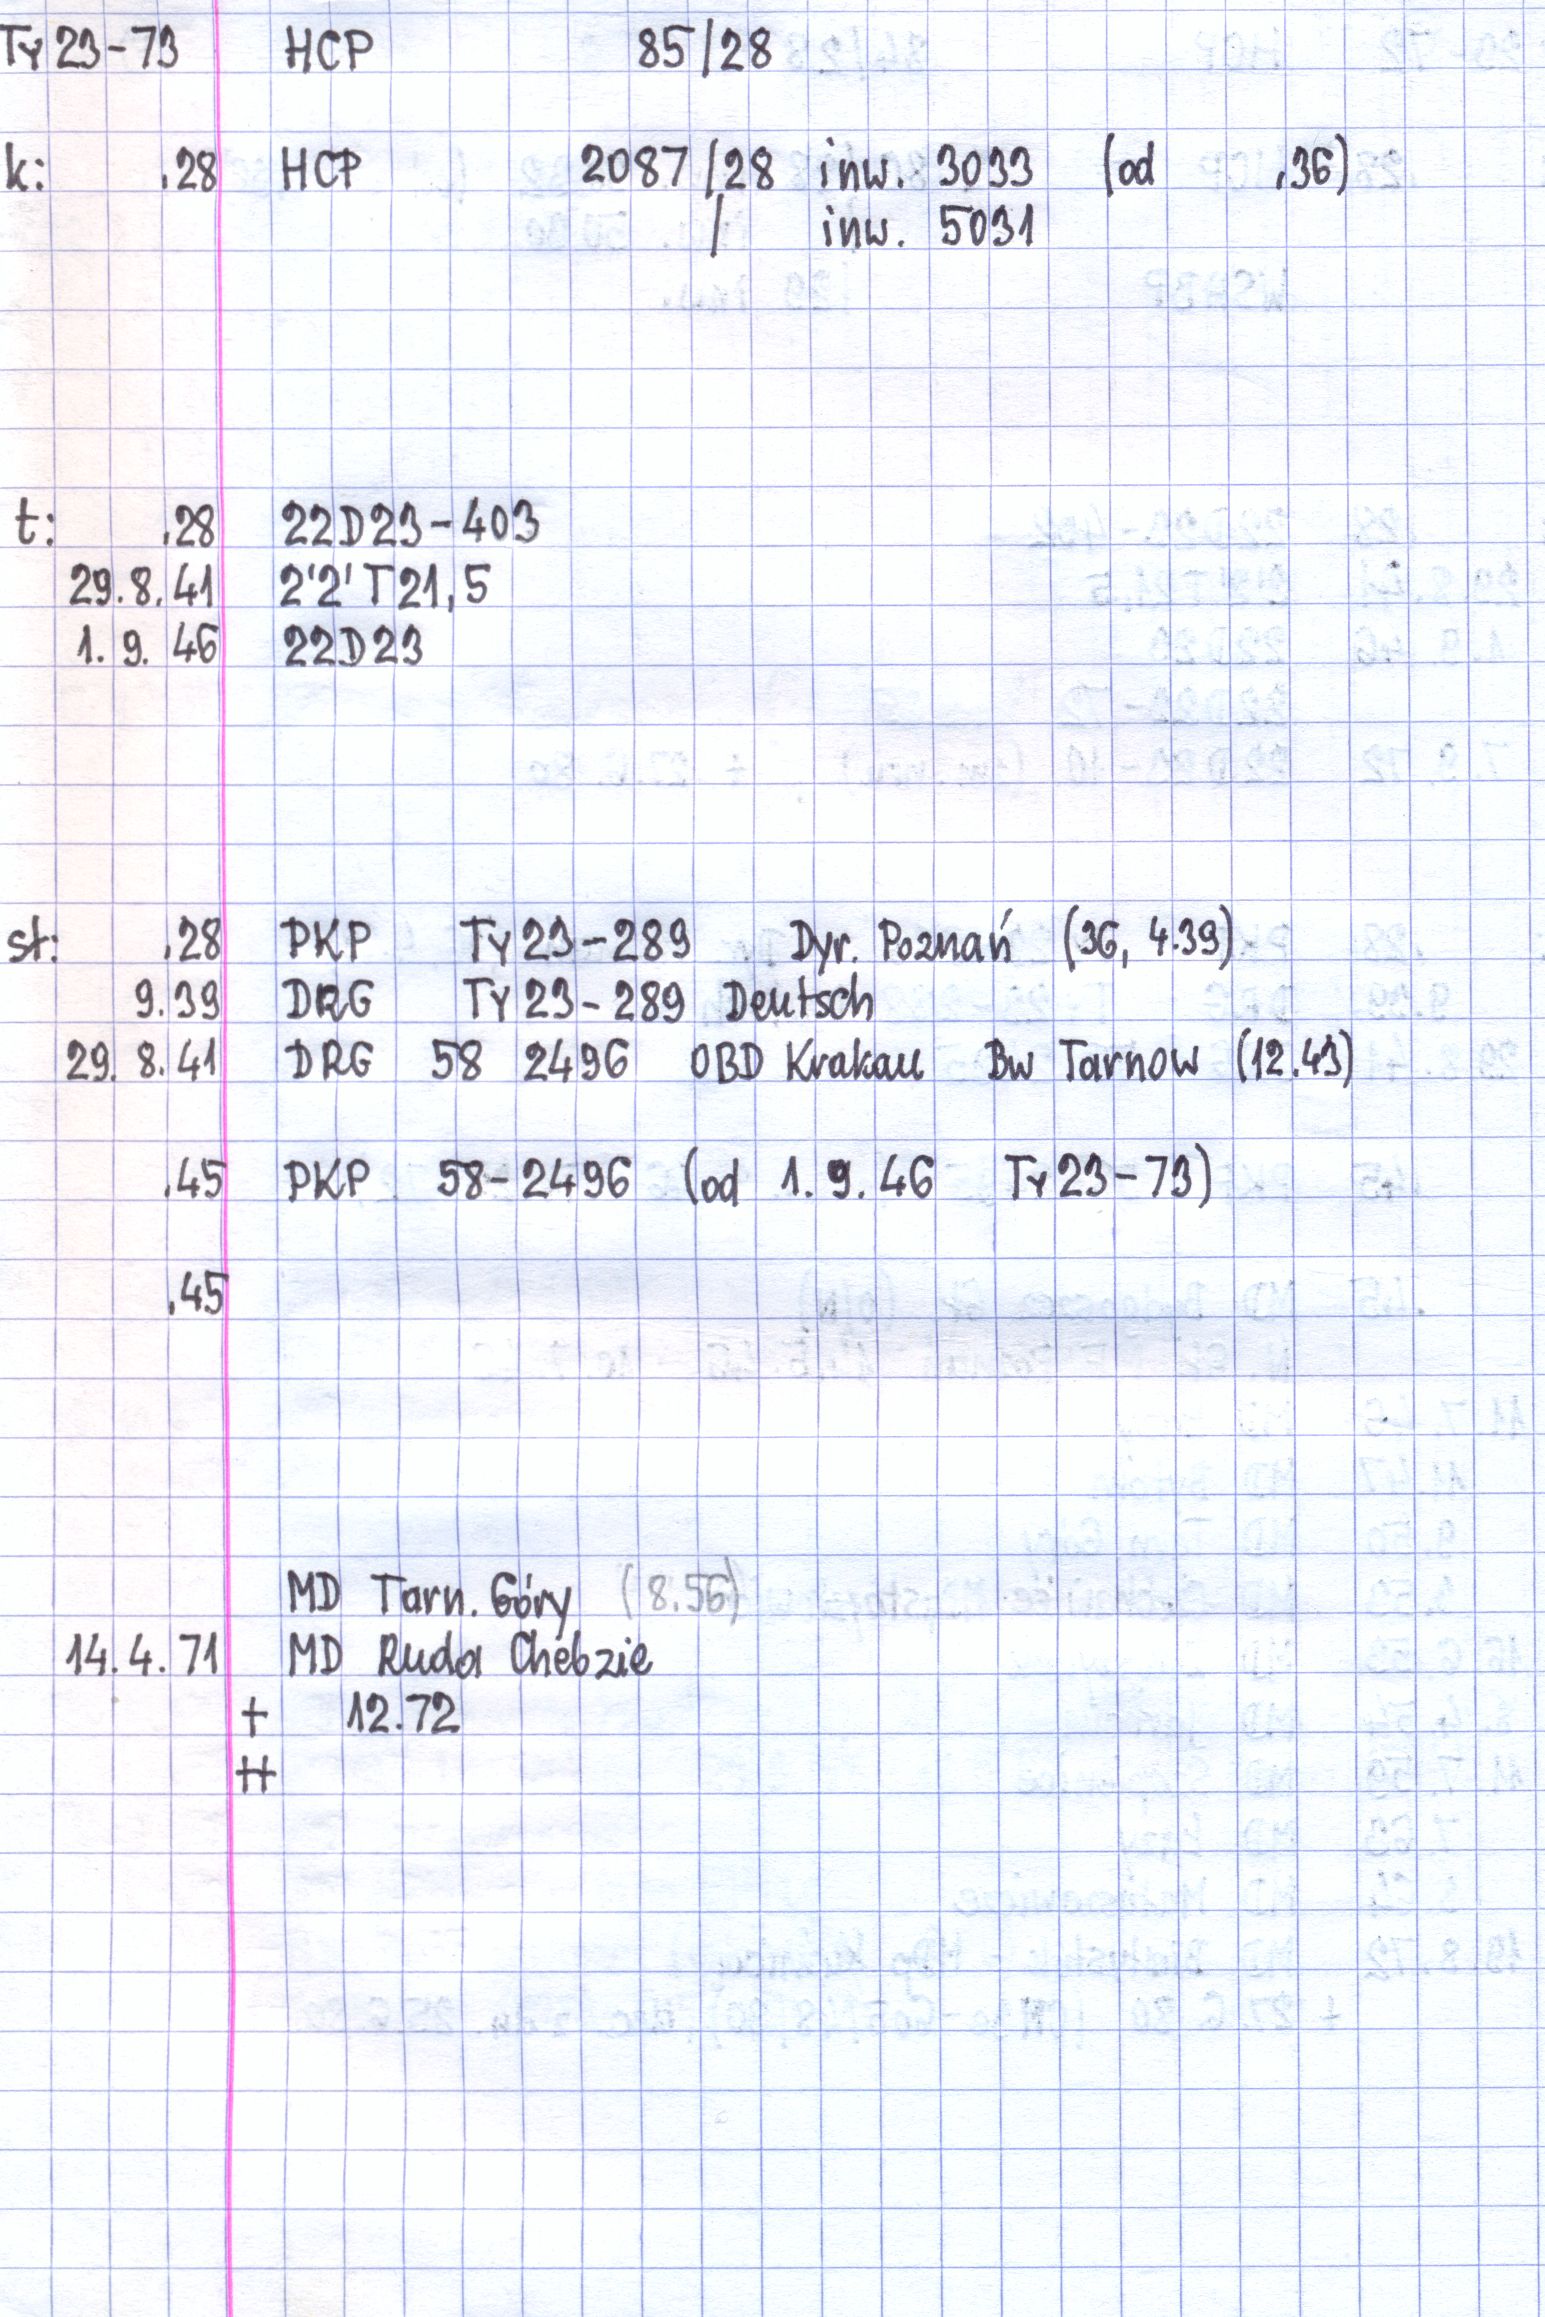 Ty23-73 HCP 85/28
k: .28 HCP 2087/28 inw. 3033 (od .36)
/ inw. 5031
t: .28 22D23-403
29.8.41 2'2'T21,5
1.9.46 22D23
st: .28 PKP Ty23-289 Dyr. Poznań (36, 4.39)
9.39 DRG Ty23-289 Deutsch
29.8.41 DRG 58 2496 OBD Krakau Bw Tarnow (12.43)
.45 PKP 58-2496 (od 1.9.46 Ty23-73)
.45
MD Tarn. Góry (8.56)
14.4.71 MD Ruda Chebzie
+ 12.72
++